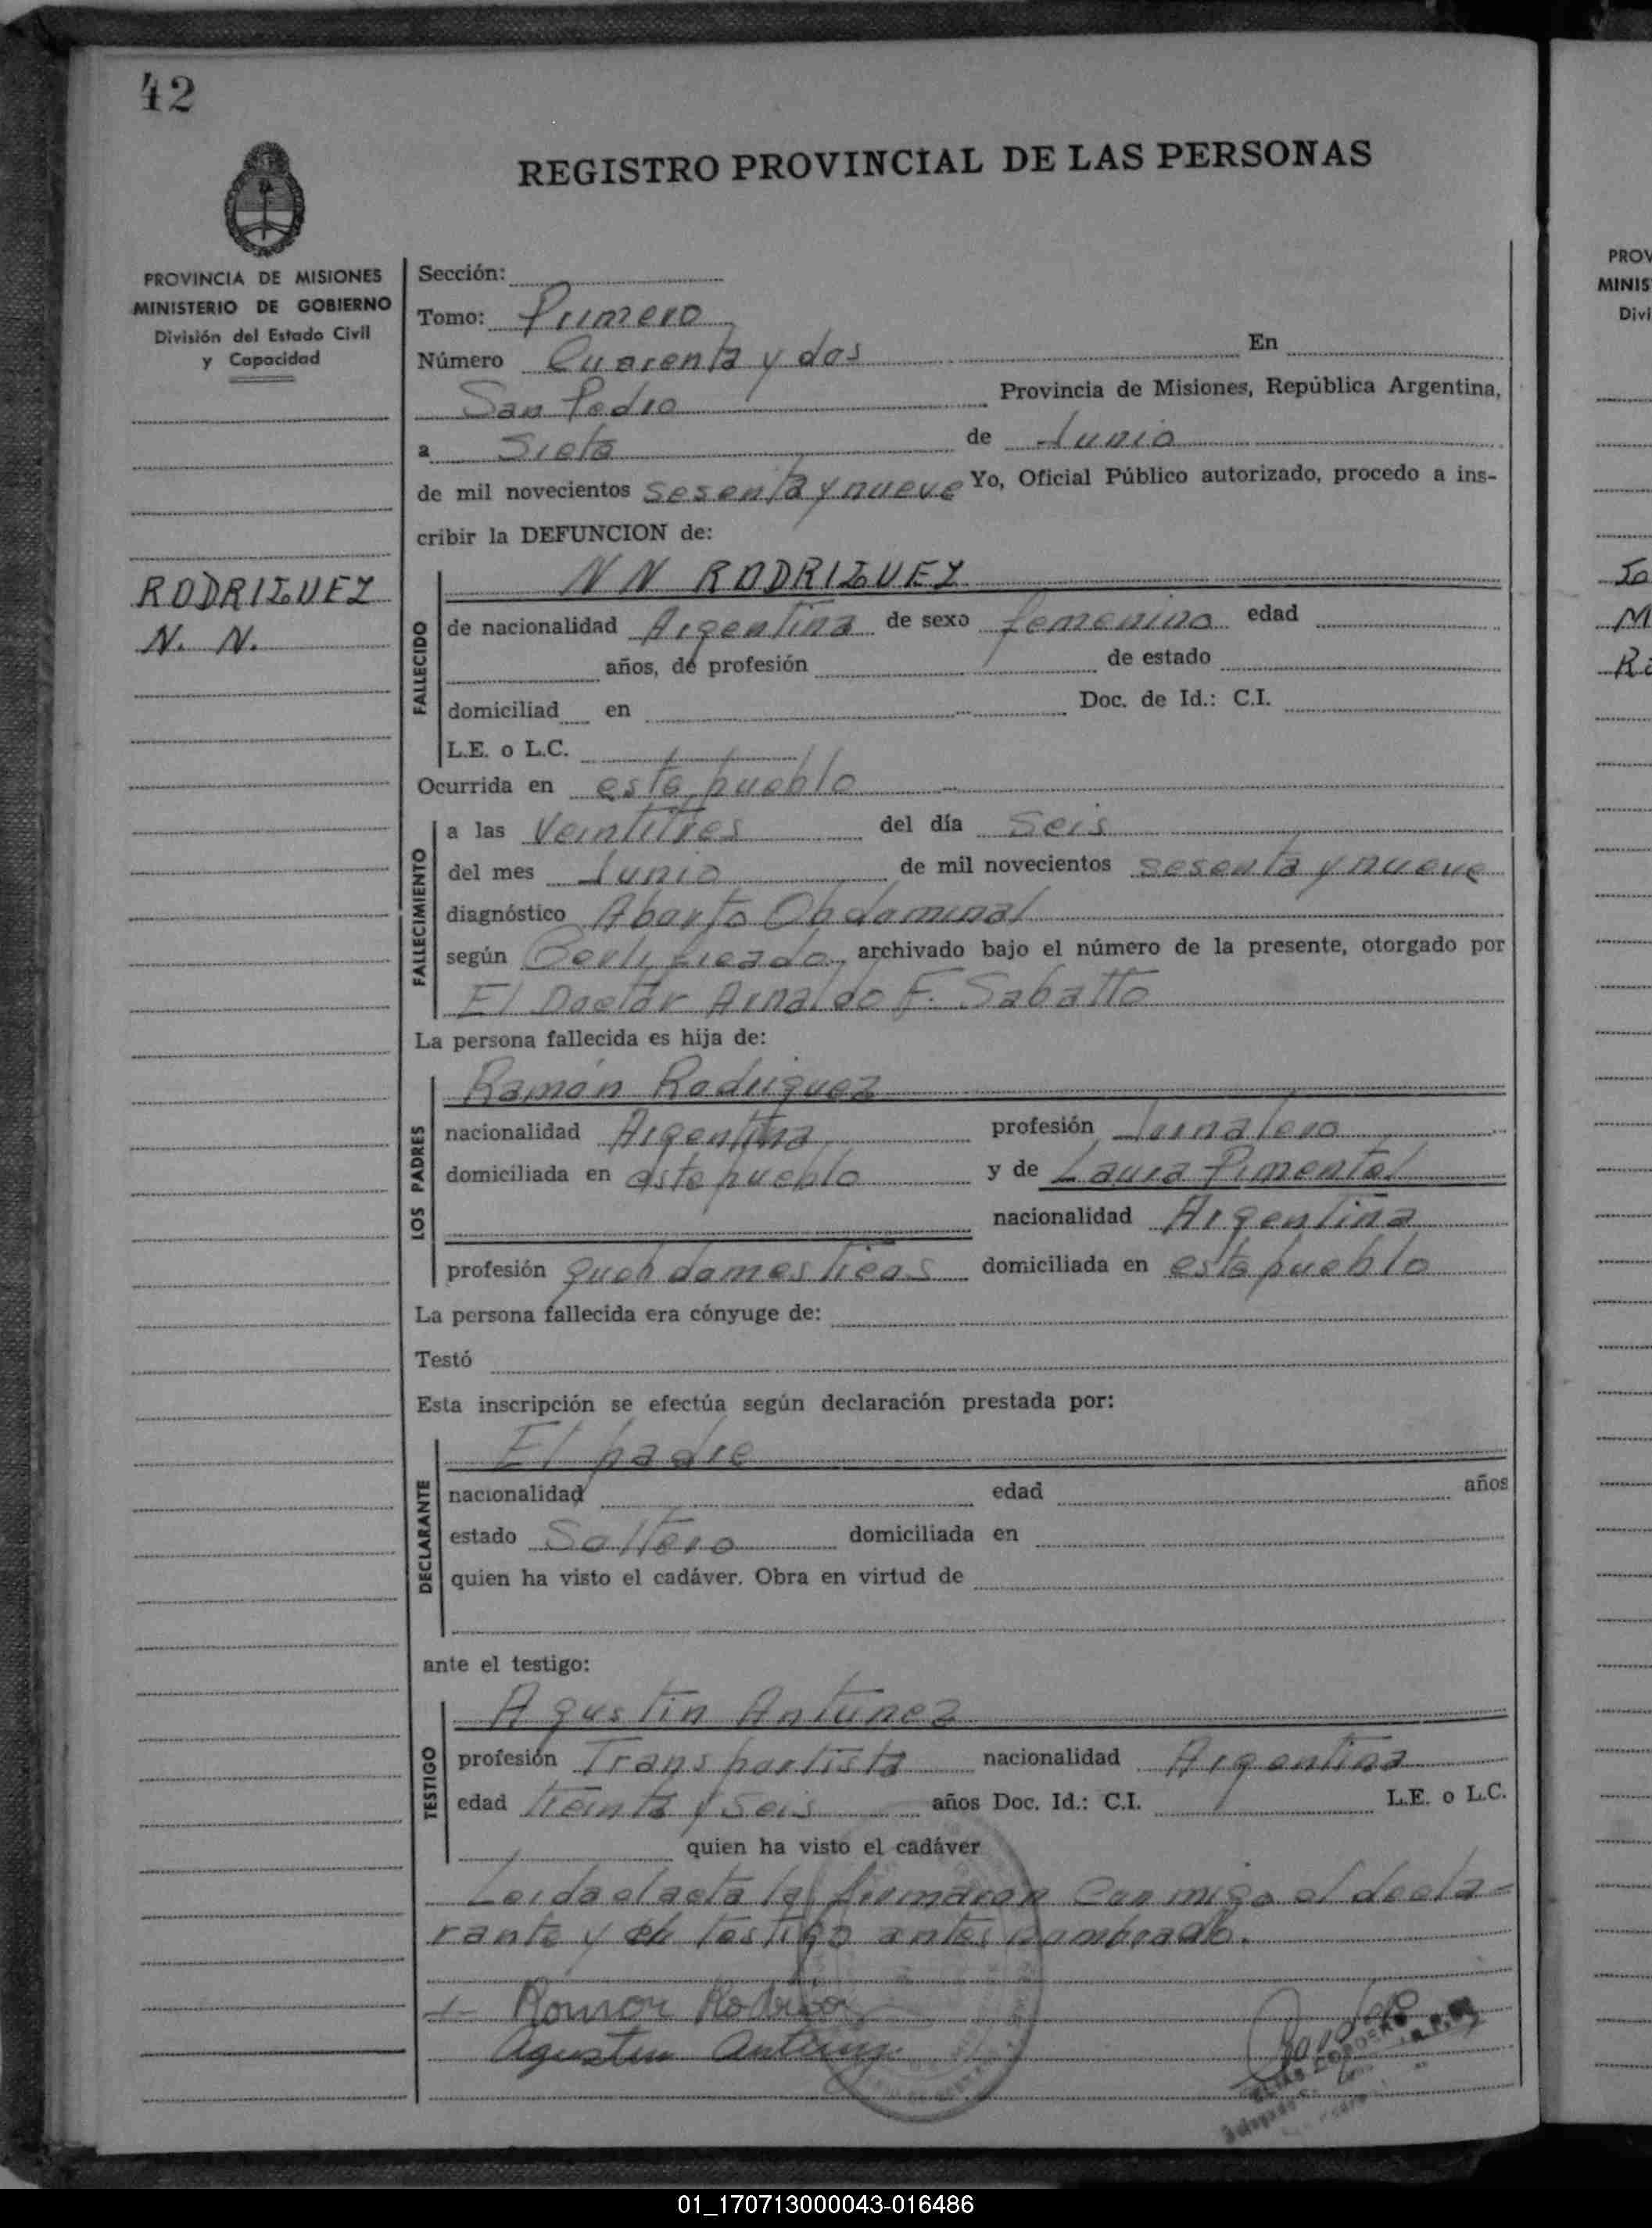 42
REGISTRO PROVINCIAL DE LAS PERSONAS
PROVINCIA DE MISIONES
MINISTERIO DE GOBIERNO
División del Estado Civil
y Capacidad
RODRIGUEZ
N. N.
Sección:
Tomo: Primero
Número Cuarenta y dos En
San Pedro Provincia de Misiones, República Argentina,
a Siete de Junio
de mil novecientos sesenta y nueve Yo, Oficial Público autorizado, procedo a ins-
cribir la DEFUNCION de:
FALLECIDO
N N RODRIGUEZ
de nacionalidad Argentina de sexo femenino edad
años, de profesión de estado
domiciliad en Doc. de Id.: C.I.
L.E. o L.C.
Ocurrida en este pueblo
FALLECIMIENTO
a las Veintitres del día Seis
del mes Junio de mil novecientos sesenta y nueve
diagnóstico Aborto Obdominal
según Certificado archivado bajo el número de la presente, otorgado por
El Doctor Arnaldo F. Sabatto
La persona fallecida es hija de:
LOS PADRES
Ramón Rodriguez
nacionalidad Argentina profesión Jornalero
domiciliada en este pueblo y de Laura Pimentel
nacionalidad Argentina
profesión queh domesticos domiciliada en este pueblo
La persona fallecida era cónyuge de:
Testó
Esta inscripción se efectúa según declaración prestada por:
DECLARANTE
El padre
nacionalidad edad años
estado Soltero domiciliada en
quien ha visto el cadáver. Obra en virtud de
ante el testigo:
TESTIGO
Agustin Antunez
profesión Transportista nacionalidad Argentina
edad treinta y seis años Doc. Id.: C.I. L.E. o L.C.
quien ha visto el cadáver
Leida el acta la firmaron conmigo el decla-
rante y el testigo antes nombrado.
Ramon Rodriguez
Agustin Antunez
PROV
MINIS
Divi
01_170713000043-016486